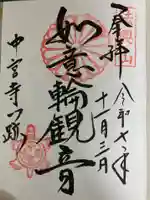 奉拝
令和七年
十一月三日
如意輪観音
中宮寺門跡
法興山